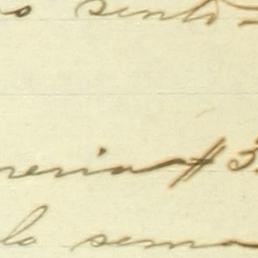 sento-
neria # 3
la sema